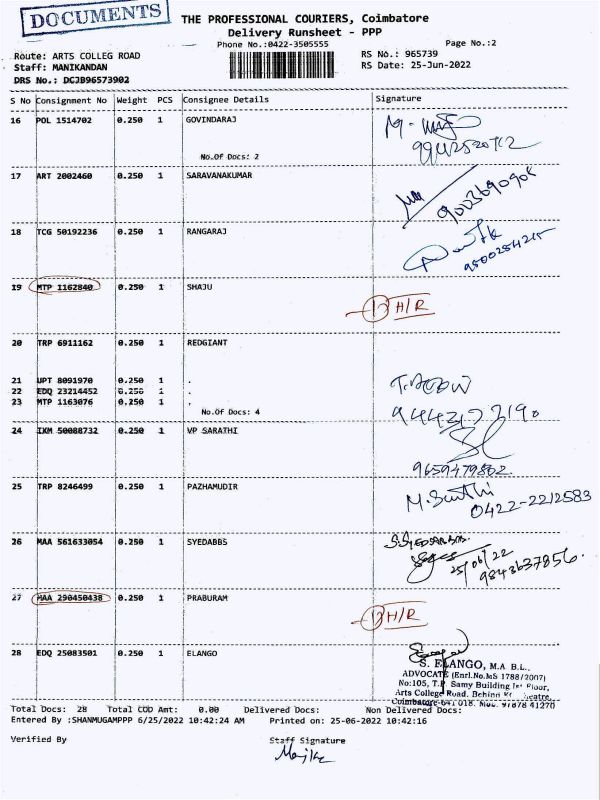 DOCUMENTS
THE PROFESSIONAL COURIERS, Coimbatore
Delivery Runsheet - PPP
Phone No.:0422-3505555
Page No.:2
Route: ARTS COLLEG ROAD
RS No.: 965739
Staff: MANIKANDAN
RS Date: 25-Jun-2022
DRS No.: DCJB96573902
S No Consignment No Weight PCS Consignee Details Signature
16 POL 1514702 0.250 1 GOVINDARAJ
No.Of Docs: 2
17 ART 2002460 0.250 1 SARAVANAKUMAR
9003690908
18 TCG 50192236 0.250 1 RANGARAJ
9500254215
19 MTP 1162840 0.250 1 SHAJU
H/R
20 TRP 6911162 0.250 1 REDGIANT
21 UPT 8091970 0.250 1 .
22 EDQ 23214452 0.250 1 .
23 MTP 1163076 0.250 1 .
No.Of Docs: 4
24 IKM 50088732 0.250 1 VP SARATHI
9659479802
25 TRP 8246499 0.250 1 PAZHAMUDIR
0422-2212583
26 MAA 561633054 0.250 1 SYEDABBS
25/06/22
9843637856.
27 MAA 290450438 0.250 1 PRABURAM
H/R
28 EDQ 25083501 0.250 1 ELANGO
S. ELANGO, M.A B.L.,
ADVOCATE (Enrl.No.MS 1788/2007)
No:105, T.P. Samy Building Floor,
Arts College Road. Behind
Coimbatore-641 018.
Total Docs: 28 Total COD Amt: 0.00 Delivered Docs: Non Delivered Docs:
Entered By :SHANMUGAMPPP 6/25/2022 10:42:24 AM Printed on: 25-06-2022 10:42:16
Verified By Staff Signature